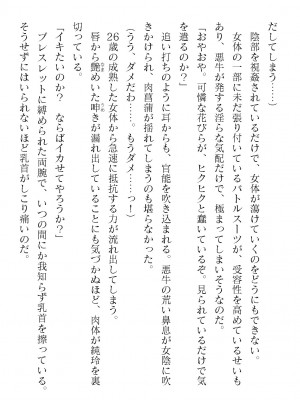 だしてしまう……）
陰部を視姦されているだけで、女体が蕩けていくのをどうにもできない。
女体の一部に未だ張り付いているバトルスーツが、受容性を高めているせいも
あり、悪牛が発する淫らな気配だけで、極まってしまいそうなのだ。
「おやおや。可憐な花びらが、ヒクヒクと蠢いているぞ。見られているだけで気
を遣るのか？」
追い打ちのように耳からも、官能を吹き込まれる。悪牛の荒い鼻息が女陰に吹
きかけられ、肉菖蒲が揺れてしまうのも堪らなかった。
（うう、ダメだわ……。もうダメ……っ）
26歳の成熟した女体から急速に抵抗する力が流れ出してしまう。
唇から艶めいた呻きが漏れ出していることにも気づかぬほど、肉体が純玲を裏
切っている。
「イキたいのか？　ならばイカせてやろうか？」
ブレスレットに縛められた両腕で、いつの間にか我知らず乳首を擦っている。
そうせずにはいられないほど乳首がしこり痛いのだ。